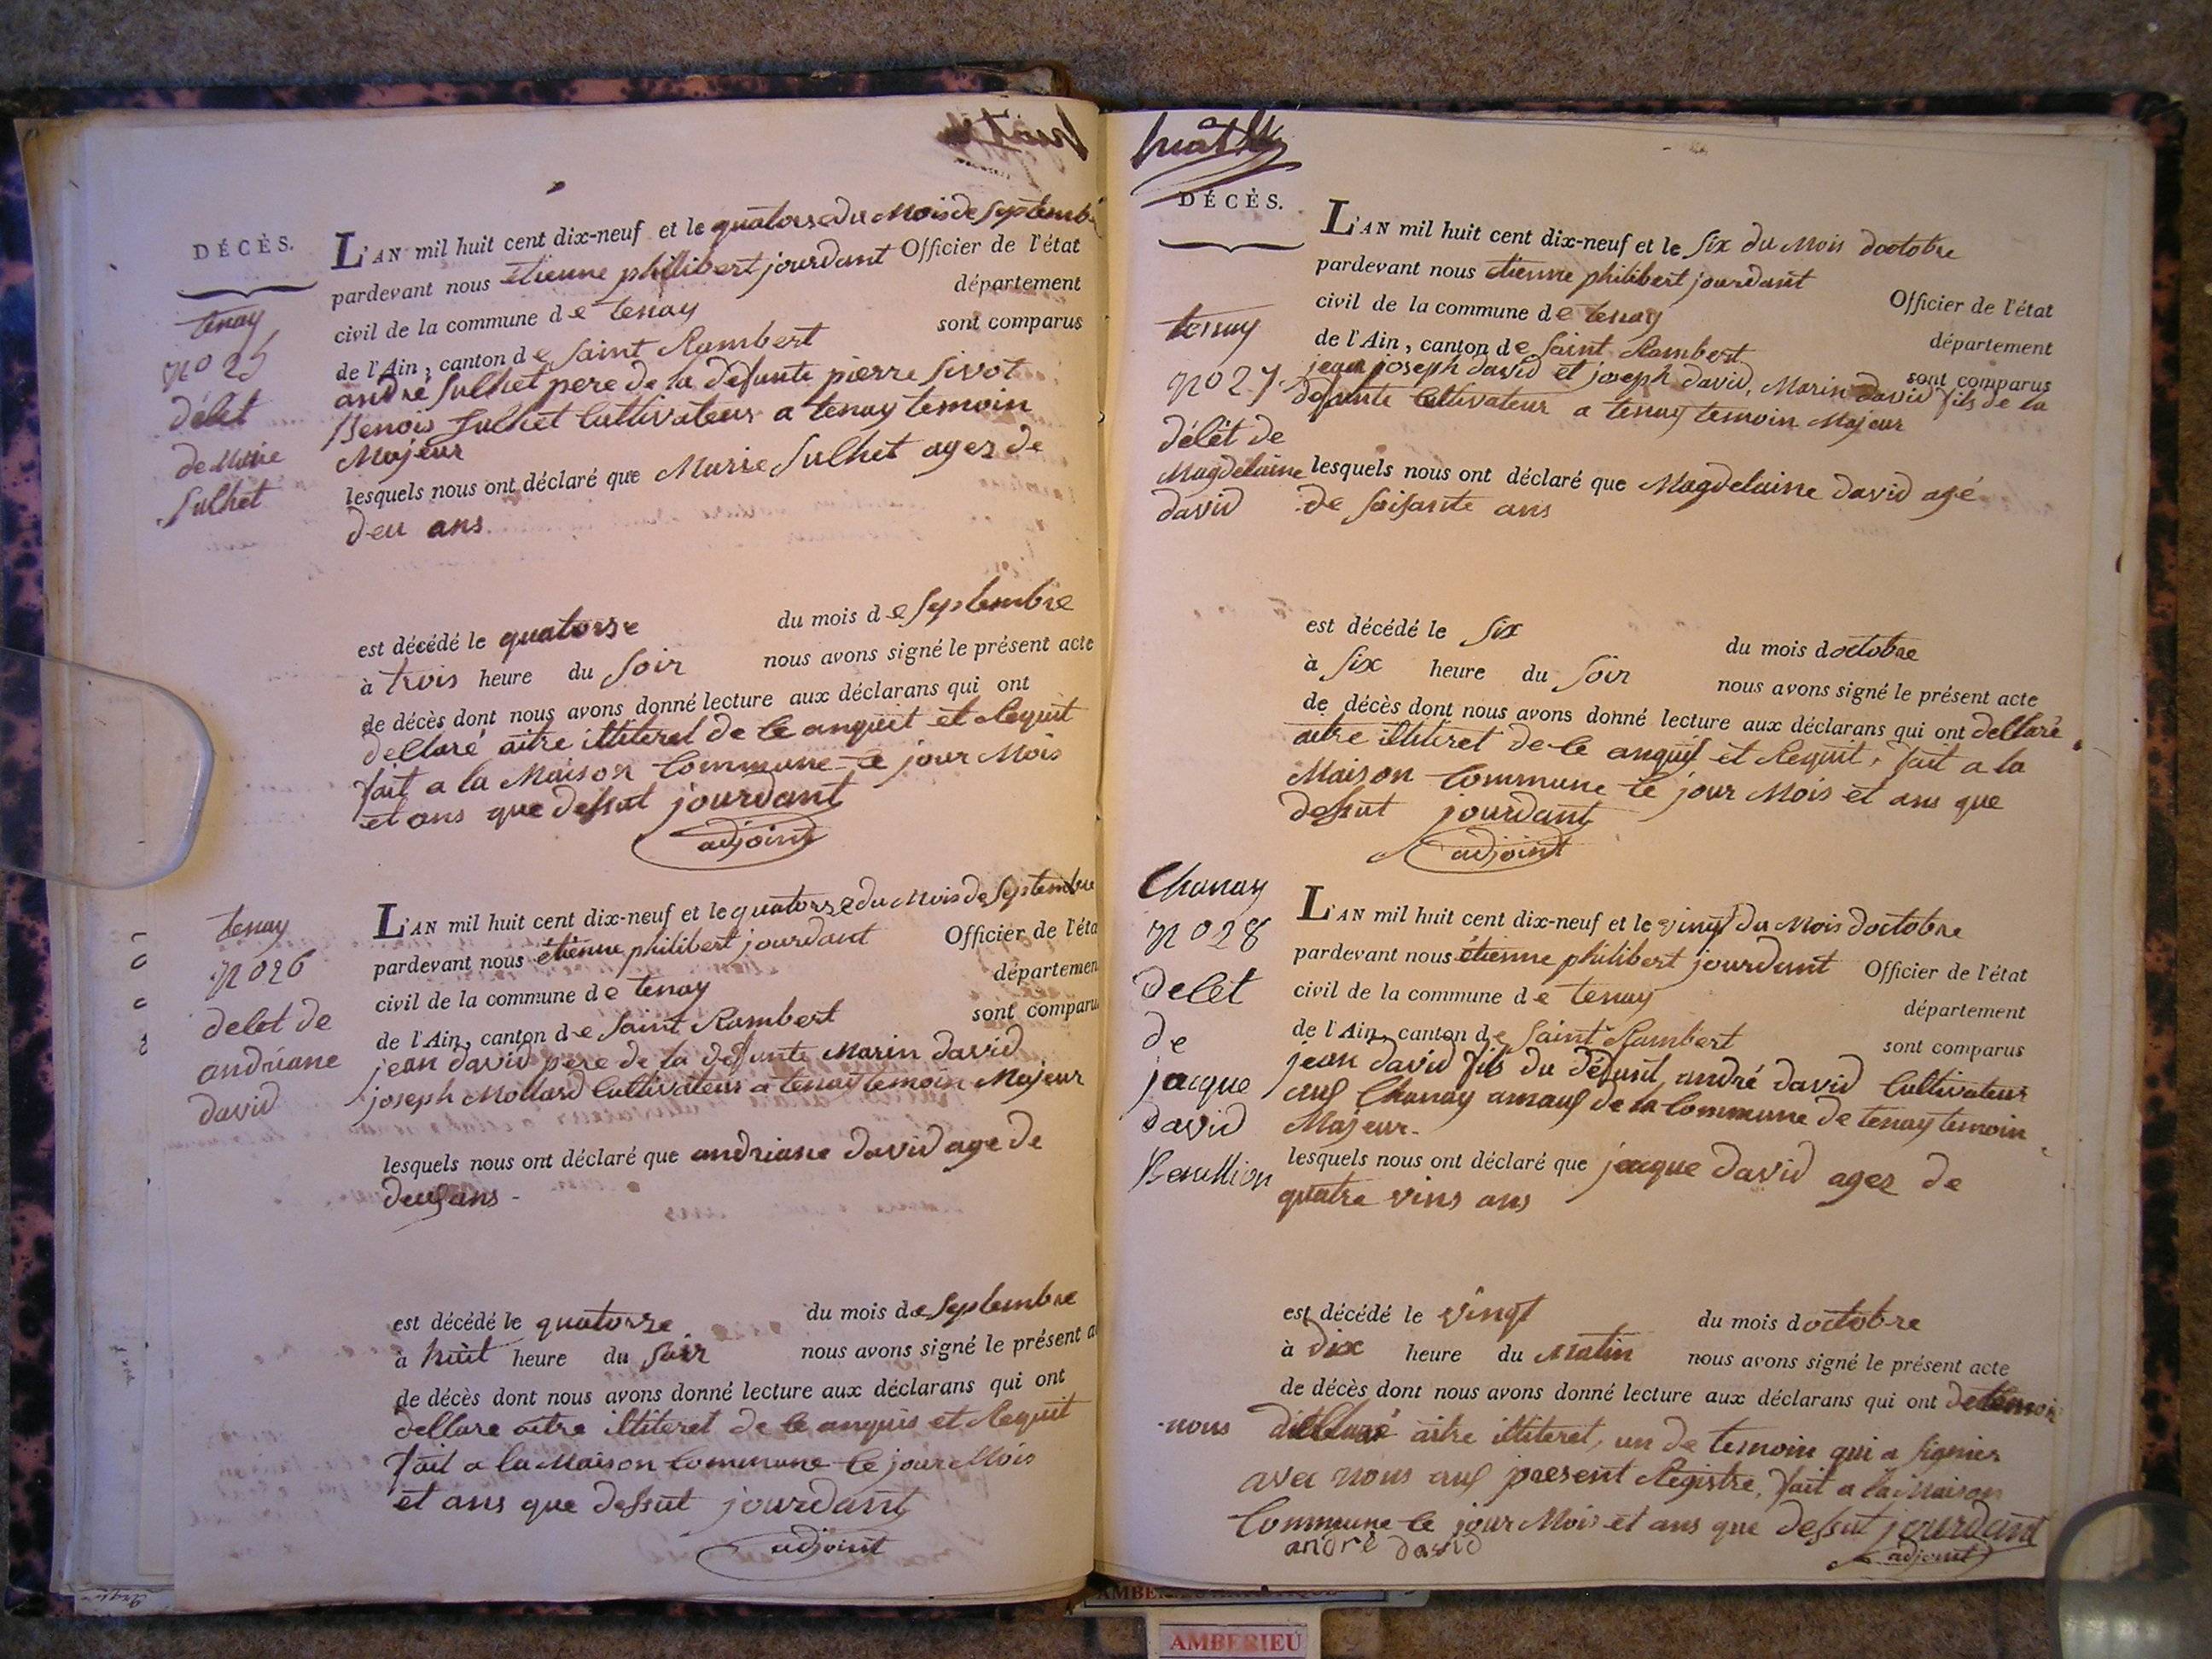 DÉCÈS.
tenay
n° 25
délet
de Marie
Sulhet
L'AN mil huit cent dix-neuf et le quatorse du Mois de Septemb
pardevant nous etienne philibert jourdant Officier de l'état
civil de la commune de tenay département
de l'Ain, canton de Saint Rambert sont comparus
andré Sulhet pere de la defunte pierre Sivot
Benois Sulhet Cultivateur a tenay temoin
Majeur
lesquels nous ont déclaré que Marie Sulhet ages de
deu ans
est décédé le quatorse du mois de Septembre
à trois heure du Soir nous avons signé le présent acte
de décès dont nous avons donné lecture aux déclarans qui ont
decllaré aitre illiteret de ce anquit et Requit
fait a la Maison Commune ce jour Mois
et ans que dessut jourdant
adjoint
tenay
n° 26
delet de
andriane
david
L'AN mil huit cent dix-neuf et le quatorse du Mois de Septembre
pardevant nous étienne philibert jourdant Officier de l'éta
civil de la commune de tenay départemen
de l'Ain, canton de Saint Rambert sont comparu
jean david pere de la defunte Marin david
joseph Mollard Cultivateur a tenay temoin Majeur
lesquels nous ont déclaré que andriane david age de
deux ans -
est décédé le quatorse du mois de Septembre
à huit heure du Soir nous avons signé le présent a
de décès dont nous avons donné lecture aux déclarans qui ont
decllare aitre illiteret de ce anquis et Requit
fait a la Maison Commune ce jour Mois
et ans que dessut jourdant
adjoint
DÉCÈS.
tenay
n° 27
délét de
Magdelaine
david
L'AN mil huit cent dix-neuf et le Six du Mois doctobre
pardevant nous etienne philibert jourdant Officier de l'état
civil de la commune de tenay département
de l'Ain, canton de Saint Rambert sont comparus
jean joseph david et joseph david, Marin david fils de la
defunte Cultivateur a tenay temoin Majeur
lesquels nous ont déclaré que Magdelaine david agé
de Soisante ans
est décédé le Six du mois doctobre
à Six heure du Soir nous avons signé le présent acte
de décès dont nous avons donné lecture aux déclarans qui ont decllaré
aitre illiteret de ce anquis et Requit, fait a la
Maison Commune ce jour Mois et ans que
dessut jourdant
adjoint
Chanay
n° 28
delét
de
jacque
david
L'AN mil huit cent dix-neuf et le vingt du Mois doctobre
pardevant nous étienne philibert jourdant Officier de l'état
civil de la commune de tenay département
de l'Ain, canton de Saint Rambert sont comparus
jean david fils du defunt, andré david Cultivateur
aus Chanay amaus de la Commune de tenay temoin
Majeur -
lesquels nous ont déclaré que jacque david ages de
quatre vins ans
est décédé le vingt du mois doctobre
à dix heure du Matin nous avons signé le présent acte
de décès dont nous avons donné lecture aux déclarans qui ont
nous aitre illiteret, un de temoin qui a signier
avec nous aus present Registre, fait a la Maison
Commune ce jour Mois et ans que dessut jourdant
andré david adjoint
AMBERIEU